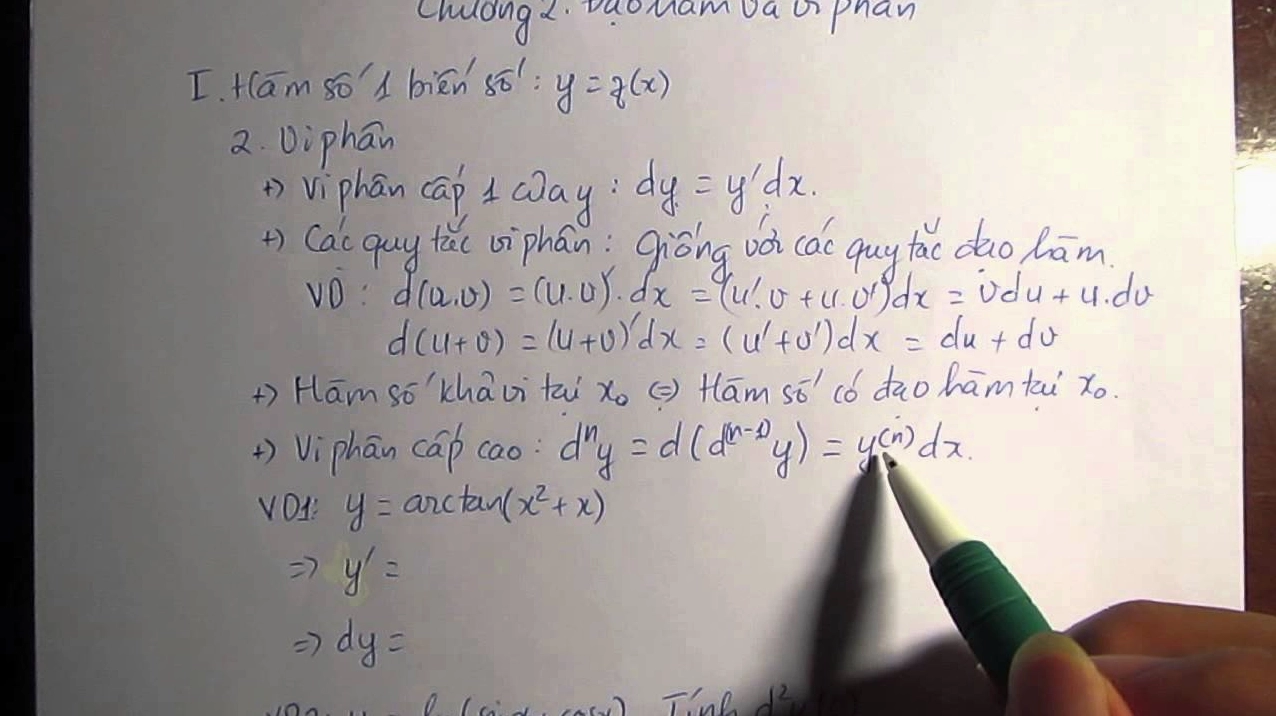 Chương 2. Đạo hàm và vi phân
I. Hàm số 1 biến số: y = f(x)
2. Vi phân
+) Vi phân cấp 1 của y : dy = y'dx.
+) Các quy tắc vi phân : Giống với các quy tắc đạo hàm.
VD : d(u.v) = (u.v)'.dx = (u'.v + u.v')dx = vdu + u.dv
d(u+v) = (u+v)'dx = (u'+v')dx = du + dv
+) Hàm số khả vi tại x₀ ⇔ Hàm số có đạo hàm tại x₀.
+) Vi phân cấp cao : dⁿy = d(d⁽ⁿ⁻¹⁾y) = y⁽ⁿ⁾dx.
VD1: y = arctan(x² + x)
=> y' =
=> dy =
Tính d²y